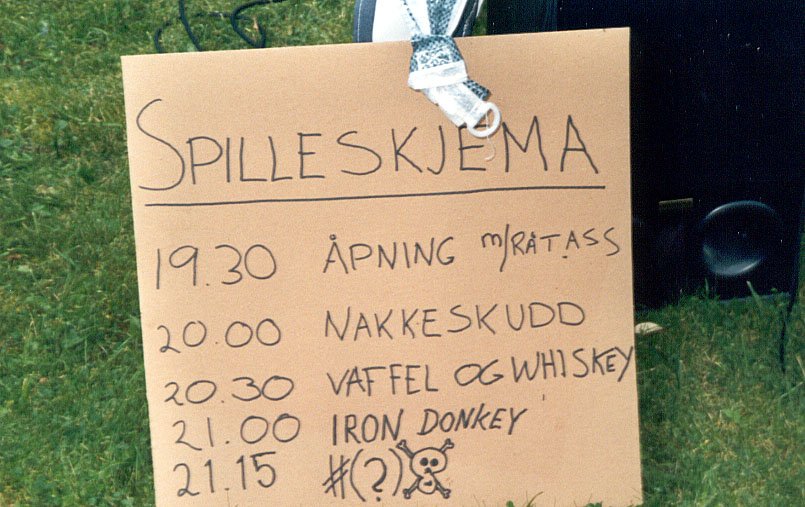 SPILLESKJEMA
19.30 ÅPNING m/RÅTASS
20.00 NAKKESKUDD
20.30 VAFFEL OG WHISKEY
21.00 IRON DONKEY
21.15 #(?)